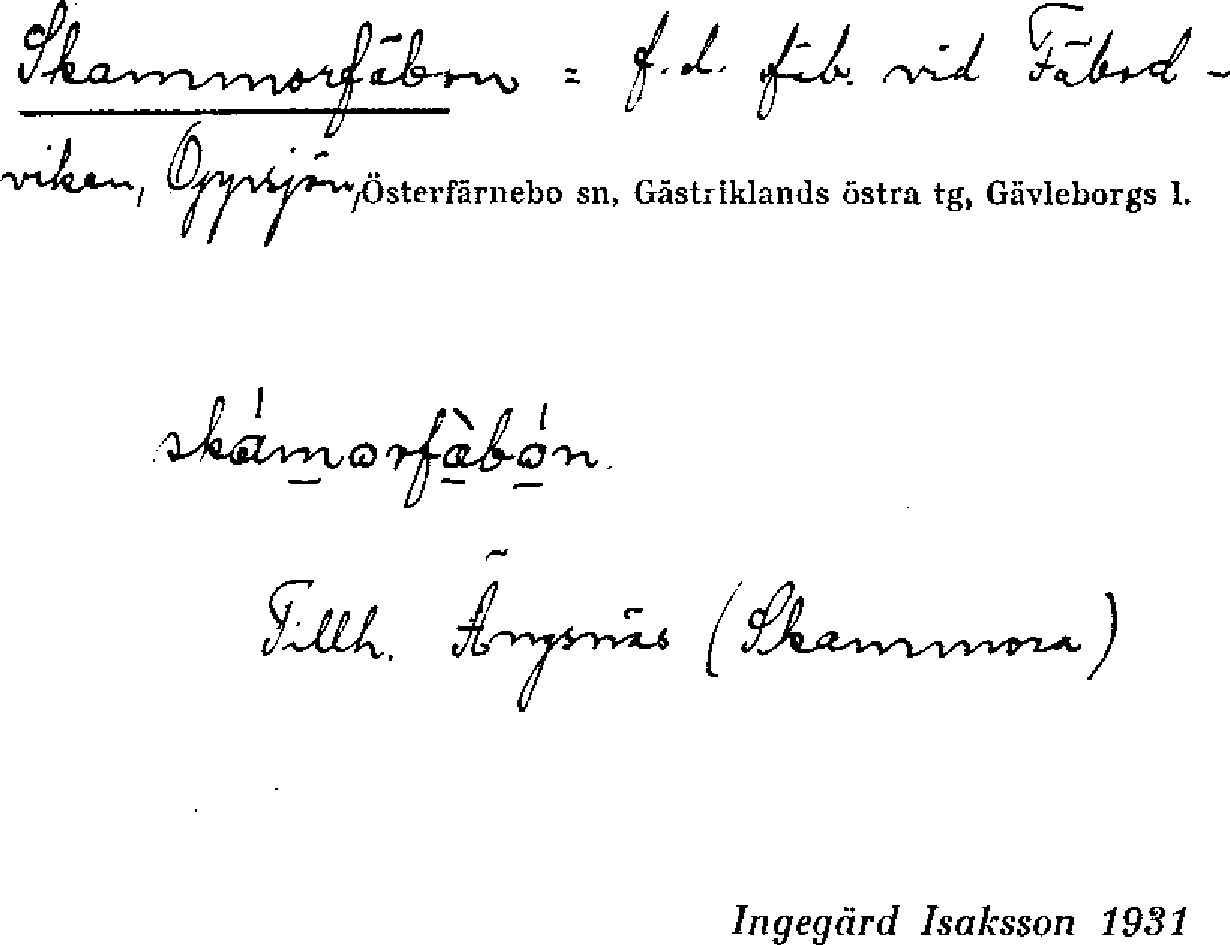 Skammorfäbon = f.d. fäb. vid Fäbod-
viken, Oppsjön, Österfärnebo sn, Gästriklands östra tg, Gävleborgs l.
skámorfàbón.
Tillh. Ängsnäs (Skammora)
Ingegärd Isaksson 1931